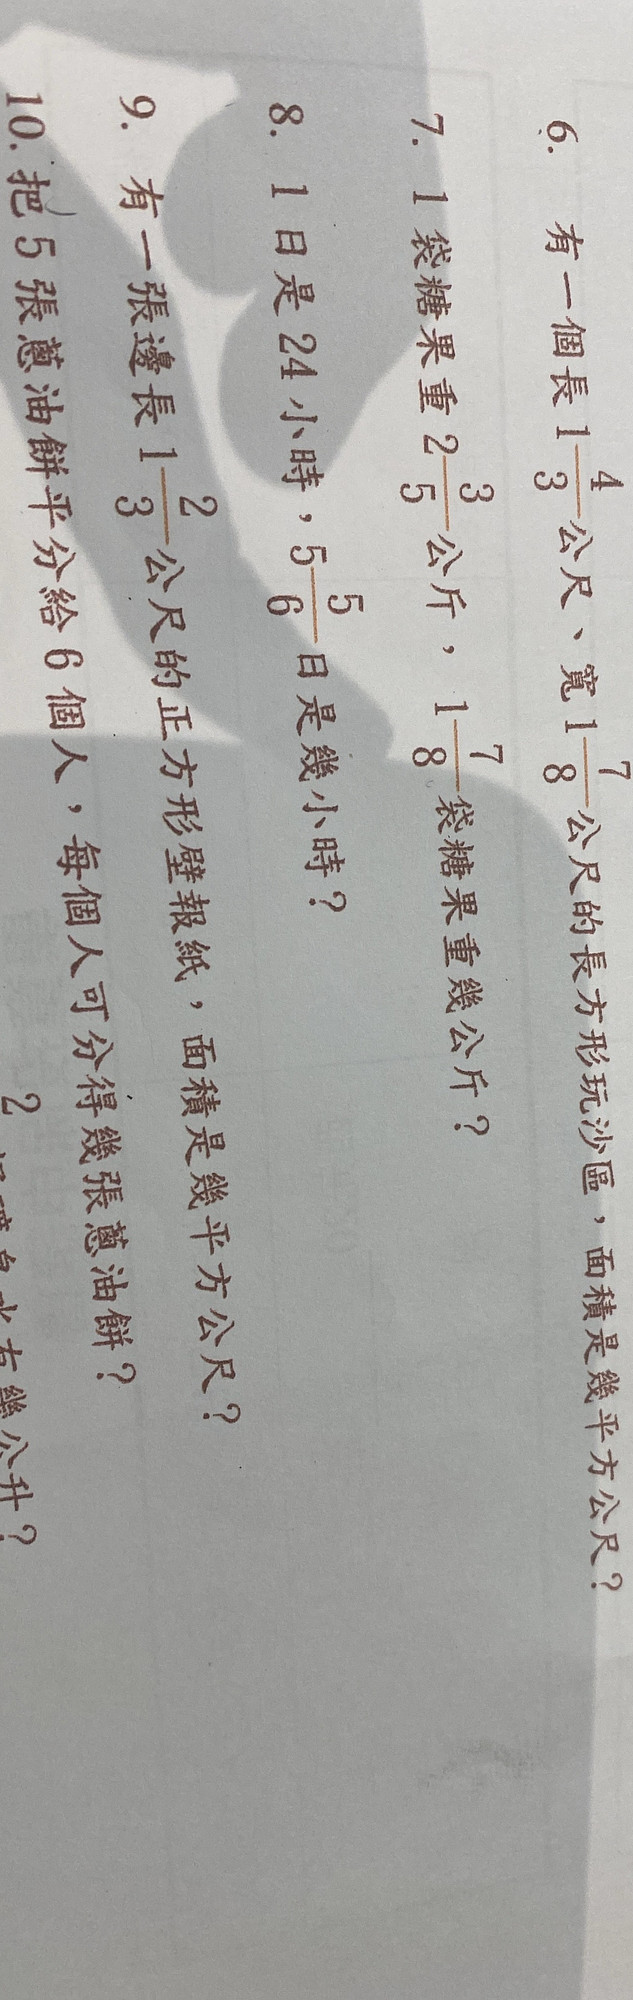 6. 有一個長1 4/3公尺、寬1 7/8公尺的長方形玩沙區，面積是幾平方公尺？
7. 1袋糖果重2 3/5公斤，1 7/8袋糖果重幾公斤？
8. 1日是24小時，5 5/6日是幾小時？
9. 有一張邊長1 2/3公尺的正方形壁報紙，面積是幾平方公尺？
10. 把5張蔥油餅平分給6個人，每個人可分得幾張蔥油餅？
2 水有幾公升？